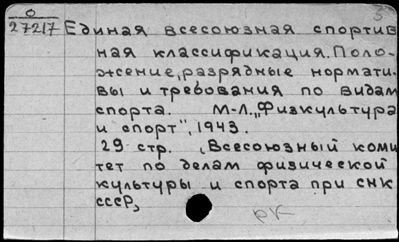 0
27217
Единая всесоюзная спортив
ная классификация. Поло-
жение, разрядные нормати-
вы и требования по видам
спорта. М-Л. „Физкультура
и спорт", 1943.
29 стр. (Всесоюзный коми
тет по делам физической
культуры и спорта при СНК
СССР)
рк